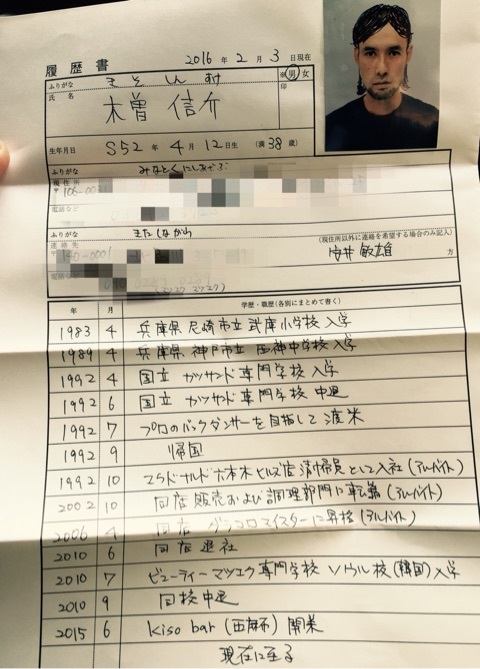 履歴書 2016年2月3日現在
ふりがな きそしんすけ ※男・女
氏名 木曽 信介 印
生年月日 S52年4月12日生 (満38歳)
ふりがな みなとくにしあざぶ
現住所
〒106-0031
電話
ふりがな きたしながわ
連絡先 (現住所以外に連絡を希望する場合のみ記入)
〒140-0001 安井 敏雄 方
電話
年 月 学歴・職歴(各別にまとめて書く)
1983 4 兵庫県 尼崎市立 武庫小学校 入学
1989 4 兵庫県 神戸市立 西神中学校 入学
1992 4 国立 カツサンド専門学校 入学
1992 6 国立 カツサンド専門学校 中退
1992 7 プロのバックダンサーを目指して渡米
1992 9 帰国
1992 10 マクドナルド六本木ヒルズ店 清掃員として入社(アルバイト)
2002 10 同店 販売および調理部門に転籍(アルバイト)
2006 4 同店 グラコロマイスターに昇格(アルバイト)
2010 6 同店退社
2010 7 ビューティーマツエク専門学校 ソウル校(韓国)入学
2010 9 同校中退
2015 6 kiso bar(西麻布)開業
現在に至る